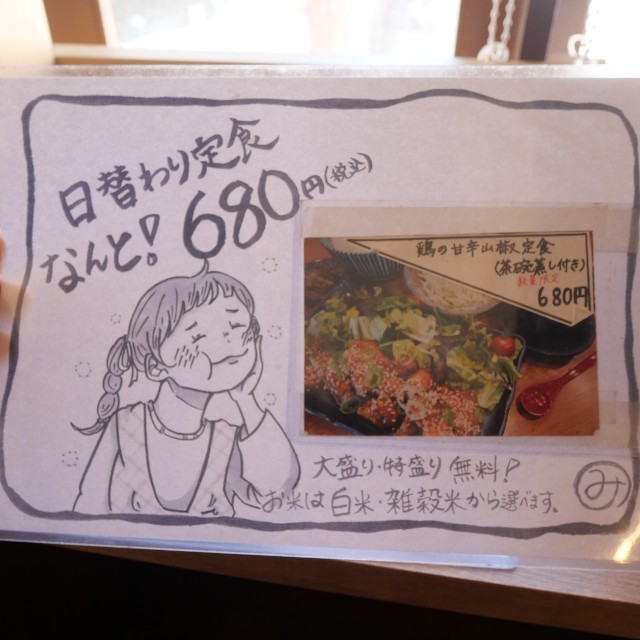 日替わり定食
なんと! 680円(税込)
鶏の甘辛山椒定食
(茶碗蒸し付き)
数量限定
680円
大盛り・特盛り無料!
お米は白米・雑穀米から選べます。
み